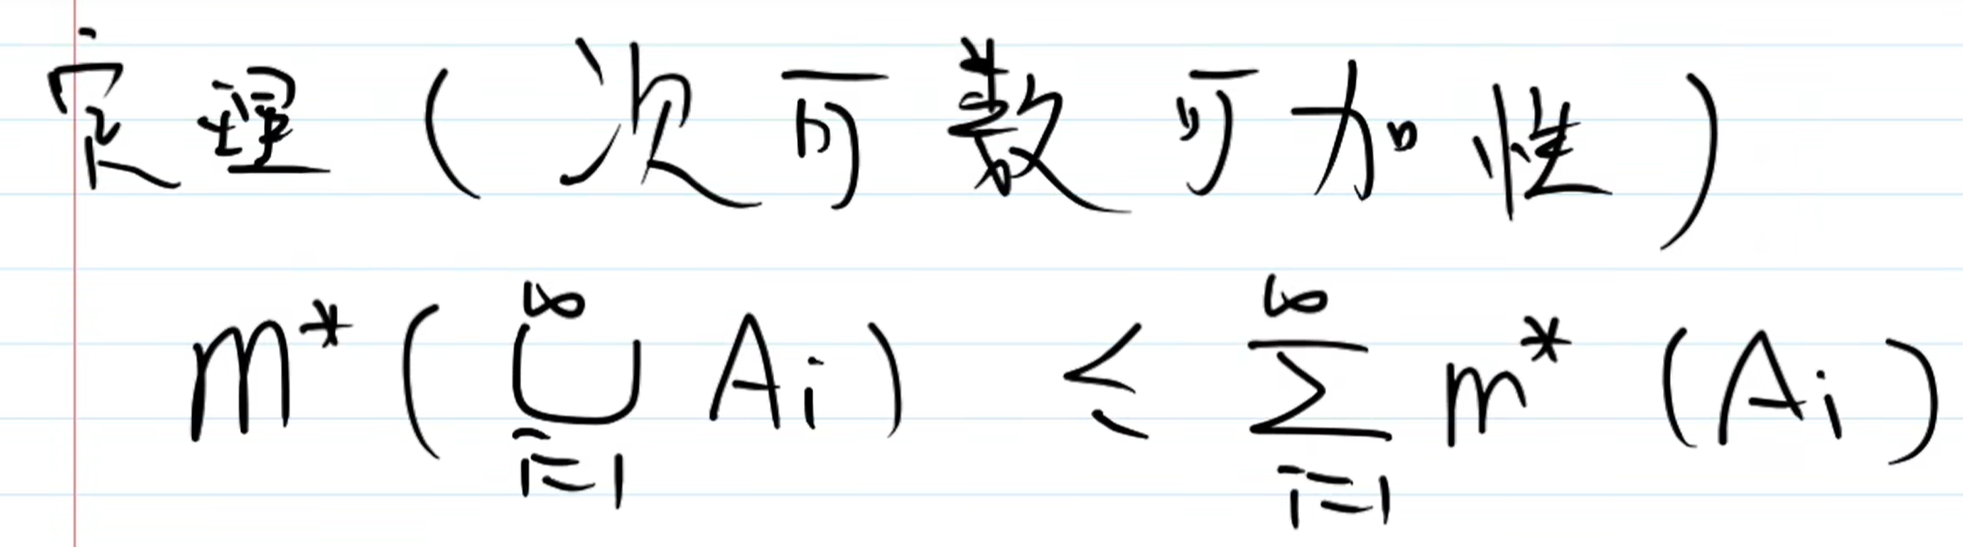 定理(次可数可加性)
m*(⋃_{i=1}^{∞} Ai) ≤ ∑_{i=1}^{∞} m*(Ai)